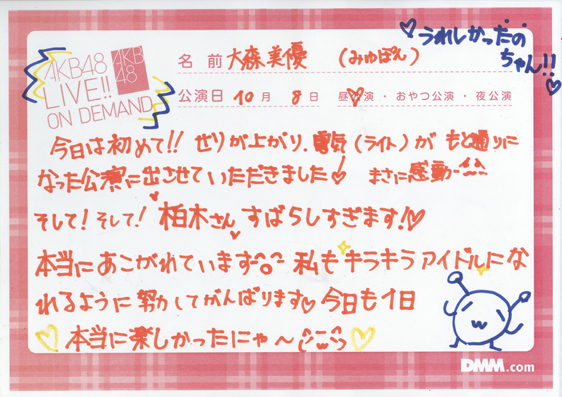 AKB48
LIVE!!
ON DEMAND
AKB
48
名 前 大森美優 (みゆぽん)
うれしかったの
ちゃん!!
公演日 10月 8日 昼公演・おやつ公演・夜公演
今日は初めて!! せりが上がり、電気(ライト)がもと通りに
なった公演に出させていただきました♡ まさに感動-^^
そして! そして! 柏木さんすばらしすぎます!♡
本当にあこがれています^o^ 私もキラキラアイドルにな
れるように努力してがんばります♡ 今日も1日
♡ 本当に楽しかったにゃ~ ♡
DMM.com